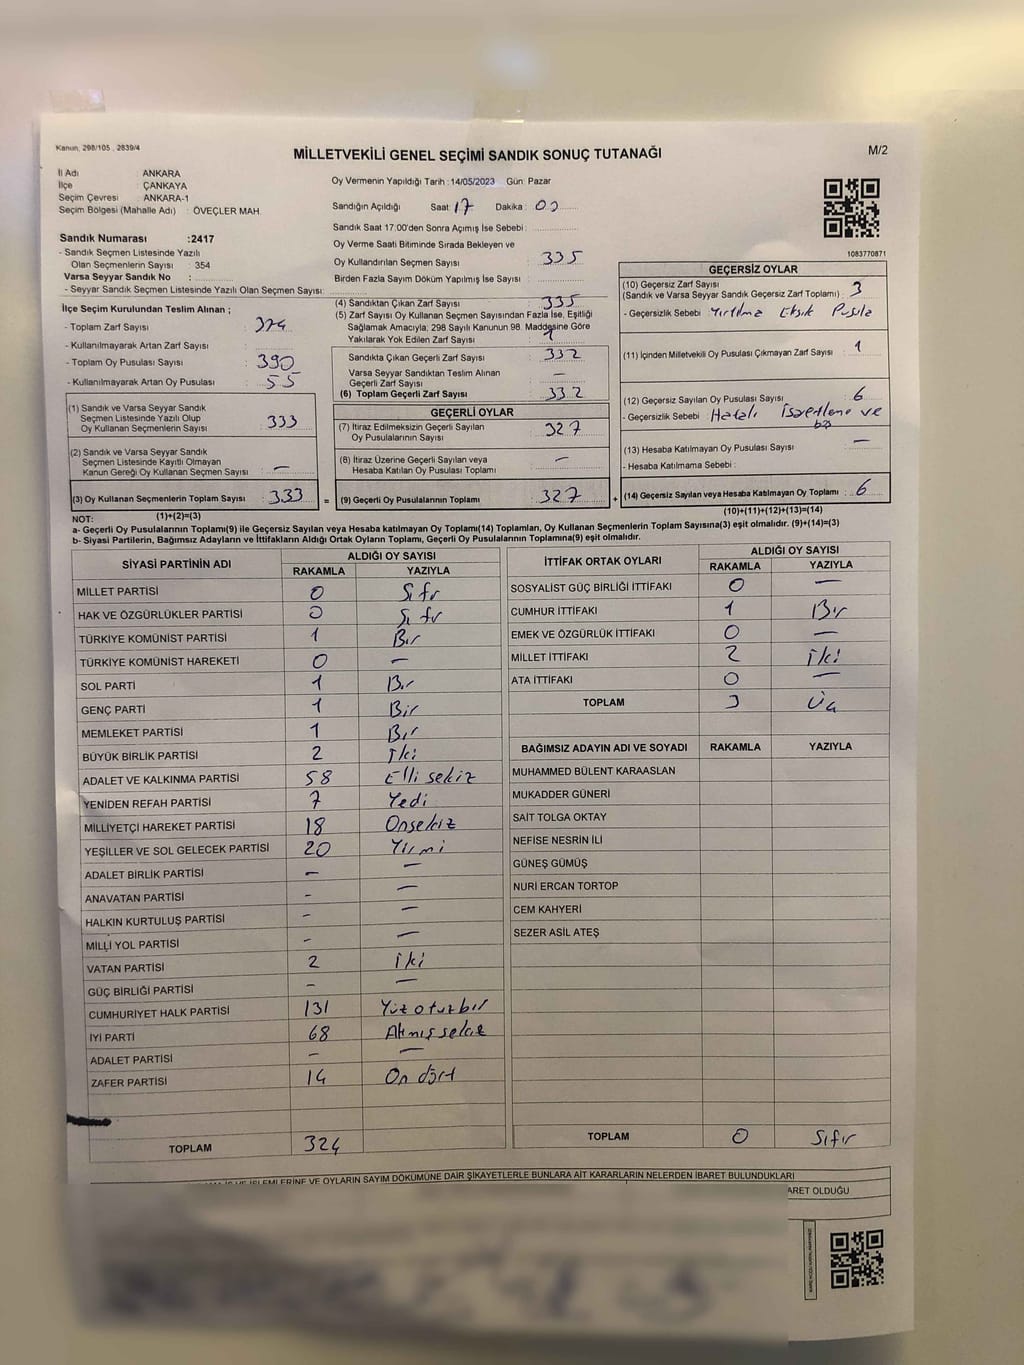 Kanun, 298/105 , 2839/4
MİLLETVEKİLİ GENEL SEÇİMİ SANDIK SONUÇ TUTANAĞI
M/2
İl Adı : ANKARA
İlçe : ÇANKAYA
Seçim Çevresi : ANKARA-1
Seçim Bölgesi (Mahalle Adı) : ÖVEÇLER MAH.
Sandık Numarası :2417
- Sandık Seçmen Listesinde Yazılı
Olan Seçmenlerin Sayısı : 354
Varsa Seyyar Sandık No :
- Seyyar Sandık Seçmen Listesinde Yazılı Olan Seçmen Sayısı:
İlçe Seçim Kurulundan Teslim Alınan ;
- Toplam Zarf Sayısı :
- Kullanılmayarak Artan Zarf Sayısı :
- Toplam Oy Pusulası Sayısı : 390
- Kullanılmayarak Artan Oy Pusulası : 55
(1) Sandık ve Varsa Seyyar Sandık
Seçmen Listesinde Yazılı Olup
Oy Kullanan Seçmenlerin Sayısı : 333
(2) Sandık ve Varsa Seyyar Sandık
Seçmen Listesinde Kayıtlı Olmayan
Kanun Gereği Oy Kullanan Seçmen Sayısı : —
(3) Oy Kullanan Seçmenlerin Toplam Sayısı : 333
(1)+(2)=(3)
Oy Vermenin Yapıldığı Tarih : 14/05/2023 Gün: Pazar
Sandığın Açıldığı Saat: 17 Dakika : 00
Sandık Saat 17:00'den Sonra Açımış İse Sebebi :
Oy Verme Saati Bitiminde Sırada Bekleyen ve
Oy Kullandırılan Seçmen Sayısı : 335
Birden Fazla Sayım Döküm Yapılmış İse Sayısı :
(4) Sandıktan Çıkan Zarf Sayısı : 335
(5) Zarf Sayısı Oy Kullanan Seçmen Sayısından Fazla İse, Eşitliği
Sağlamak Amacıyla; 298 Sayılı Kanunun 98. Maddesine Göre
Yakılarak Yok Edilen Zarf Sayısı :
Sandıkta Çıkan Geçerli Zarf Sayısı : 332
Varsa Seyyar Sandıktan Teslim Alınan
Geçerli Zarf Sayısı : —
(6) Toplam Geçerli Zarf Sayısı : 332
GEÇERLİ OYLAR
(7) İtiraz Edilmeksizin Geçerli Sayılan
Oy Pusulalarının Sayısı : 327
(8) İtiraz Üzerine Geçerli Sayılan veya
Hesaba Katılan Oy Pusulası Toplamı : —
= (9) Geçerli Oy Pusulalarının Toplamı : 327 +
1083770871
GEÇERSİZ OYLAR
(10) Geçersiz Zarf Sayısı
(Sandık ve Varsa Seyyar Sandık Geçersiz Zarf Toplamı) : 3
- Geçersizlik Sebebi : Yırtılma Eksik Pusula
(11) İçinden Milletvekili Oy Pusulası Çıkmayan Zarf Sayısı : 1
(12) Geçersiz Sayılan Oy Pusulası Sayısı : 6
- Geçersizlik Sebebi : Hatalı İşaretleme ve
boş
(13) Hesaba Katılmayan Oy Pusulası Sayısı : —
- Hesaba Katılmama Sebebi :
(14) Geçersiz Sayılan veya Hesaba Katılmayan Oy Toplamı : 6
(10)+(11)+(12)+(13)=(14)
NOT:
a- Geçerli Oy Pusulalarının Toplamı(9) ile Geçersiz Sayılan veya Hesaba katılmayan Oy Toplamı(14) Toplamları, Oy Kullanan Seçmenlerin Toplam Sayısına(3) eşit olmalıdır. (9)+(14)=(3)
b- Siyasi Partilerin, Bağımsız Adayların ve İttifakların Aldığı Ortak Oyların Toplamı, Geçerli Oy Pusulalarının Toplamına(9) eşit olmalıdır.
SİYASİ PARTİNİN ADI ALDIĞI OY SAYISI
RAKAMLA YAZIYLA
MİLLET PARTİSİ 0 Sıfır
HAK VE ÖZGÜRLÜKLER PARTİSİ 0 Sıfır
TÜRKİYE KOMÜNİST PARTİSİ 1 Bir
TÜRKİYE KOMÜNİST HAREKETİ 0 —
SOL PARTİ 1 Bir
GENÇ PARTİ 1 Bir
MEMLEKET PARTİSİ 1 Bir
BÜYÜK BİRLİK PARTİSİ 2 İki
ADALET VE KALKINMA PARTİSİ 58 Elli sekiz
YENİDEN REFAH PARTİSİ 7 Yedi
MİLLİYETÇİ HAREKET PARTİSİ 18 Onsekiz
YEŞİLLER VE SOL GELECEK PARTİSİ 20 Yirmi
ADALET BİRLİK PARTİSİ – —
ANAVATAN PARTİSİ – —
HALKIN KURTULUŞ PARTİSİ – —
MİLLİ YOL PARTİSİ – —
VATAN PARTİSİ 2 İki
GÜÇ BİRLİĞİ PARTİSİ – —
CUMHURİYET HALK PARTİSİ 131 Yüz otuz bir
İYİ PARTİ 68 Atmış sekiz
ADALET PARTİSİ – —
ZAFER PARTİSİ 14 On dört
TOPLAM 324
İTTİFAK ORTAK OYLARI ALDIĞI OY SAYISI
RAKAMLA YAZIYLA
SOSYALİST GÜÇ BİRLİĞİ İTTİFAKI 0 —
CUMHUR İTTİFAKI 1 Bir
EMEK VE ÖZGÜRLÜK İTTİFAKI 0 —
MİLLET İTTİFAKI 2 İki
ATA İTTİFAKI 0 —
TOPLAM 3 Üç
BAĞIMSIZ ADAYIN ADI VE SOYADI RAKAMLA YAZIYLA
MUHAMMED BÜLENT KARAASLAN
MUKADDER GÜNERİ
SAİT TOLGA OKTAY
NEFİSE NESRİN İLİ
GÜNEŞ GÜMÜŞ
NURİ ERCAN TORTOP
CEM KAHYERİ
SEZER ASİL ATEŞ
TOPLAM 0 Sıfır
İŞLEMLERİNE VE OYLARIN SAYIM DÖKÜMÜNE DAİR ŞİKAYETLERLE BUNLARA AİT KARARLARIN NELERDEN İBARET BULUNDUKLARI
ARET OLDUĞU